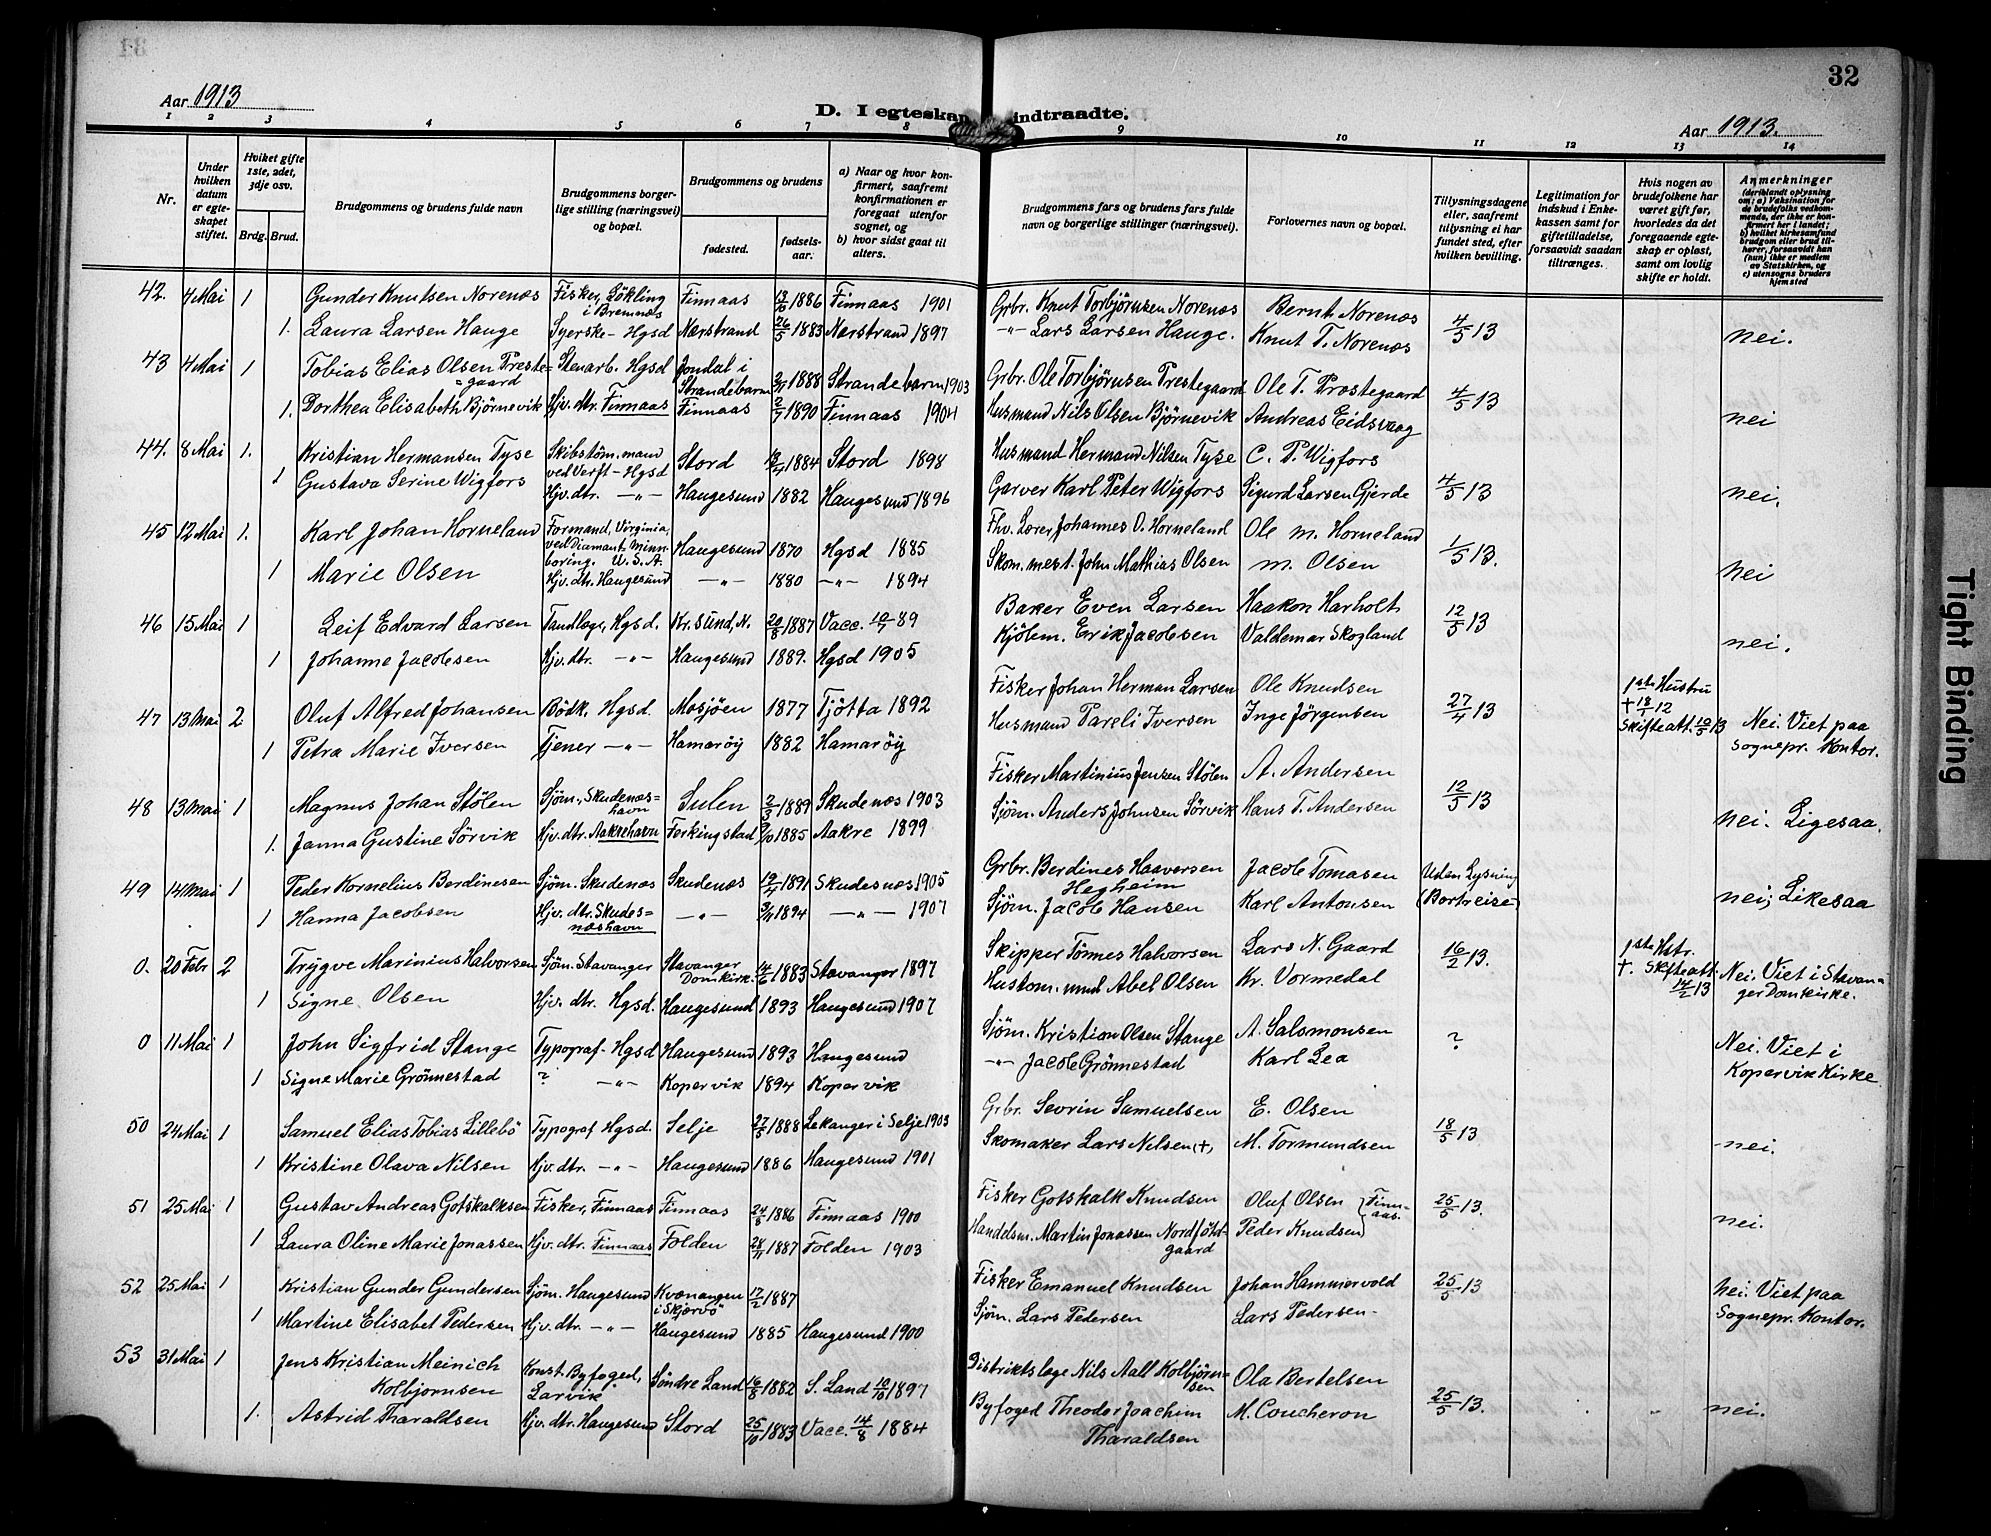 32
Aar 1913
D. I egteskap indtraadte.
Aar 1913.
1 2 3 4 5 6 7 8 9 10 11 12 13 14
Nr.
Under hvilken datum er egteskapet stiftet.
Hviket gifte 1ste, 2det, 3dje osv.
Brdg. Brud.
Brudgommens og brudens fulde navn
Brudgommens borgerlige stilling (næringsvei) og bopæl.
Brudgommens og brudens
fødested.
fødselsaar.
a) Naar og hvor konfirmert, saafremt konfirmationen er foregaat utenfor sognet, og
b) hvor sidst gaat til alters.
Brudgommens fars og brudens fars fulde navn og borgerlige stillinger (næringsvei).
Forlovernes navn og bopæl.
Tillysningsdagene eller, saafremt tillysning ei har fundet sted, efter hvilken bevilling.
Legitimation for indskud i Enkekassen samt for giftetilladelse, forsaavidt saadan tiltrænges.
Hvis nogen av brudefolkene har været gift før, hvorledes da det foregaaende egteskap er opløst, samt om lovlig skifte er holdt.
Anmerkninger
(deriblandt oplysning om: a) Vaksination for de brudefolks vedkommende, der ikke er konfirmert her i landet; b) hvilket kirkesamfund brudgom eller brud tilhører, forsaavidt han (hun) ikke er medlem av Statskirken, og c) utensogns bruders hjemsted
42. 4 Mai 1 Gunder Knutsen Norenæs Fisker, Løkling i Bremnæs Finnaas 13/10 1886 Finnaas 1901 Grbr. Knut Torbjørnsen Norenæs Bernt Norenæs 4/5 13 nei.
1. Laura Larsen Hauge Syerske - Hgsd Nærstrand 26/5 1883 Nærstrand 1897 -"- Lars Larsen Hauge. Knut T. Norenæs
43 4 Mai 1 Tobias Elias Olsen Prestegaard Stenarb. Hgsd Jondal i Strandebarm 1888 Strandebarm 1903 Grbr. Ole Torbjørnsen Prestegaard Ole T. Prostegaard 4/5 13 nei
1. Dorthea Elisabeth Bjørnevik Hjv. dtr. Finnaas Finnaas 2/7 1890 Finnaas 1904 Husmand Nils Olsen Bjørnevik Andreas Eidsvaag
44. 8 Mai 1. Kristian Hermansen Tyse Skibstøm. mand ved Verft - Hgsd Stord 1884 Stord 1898 Husmand Hermand Nilsen Tyse C. P. Wigfors 4/5 13 nei.
1 Gustava Serine Wigfors Hjv. dtr. -"- Haugesund 1882 Haugesund 1896 Garver Karl Peter Wigfors Sigurd Larsen Gjerde
45 12 Mai 1. Karl Johan Horneland Formand, Virginia, ved Diamant Minnboring. U.S.A. Haugesund 1870 Hgsd 1885 Fhv. Lærer Johannes O. Horneland Ole M. Horneland 1/5 13. nei
1 Marie Olsen Hjv. dtr. Haugesund -"- 1880 -"- 1894 Skom. mest. John Mathias Olsen M. Olsen
46 15 Mai 1 Leif Edvard Larsen Tandlæge, Hgsd. Kr. sund, N. 20/8 1887 Vacc. 10/7 89 Baker Even Larsen Haakon Harholt 12/5 13 nei.
1 Johanne Jacobsen Hjv. dtr. -"- Haugesund 1889. Hgsd 1905 Kjølem. Erik Jacobsen Valdemar Skogland
47 13 Mai 2 Oluf Alfred Johansen Bødk. Hgsd. Mosjøen 1877 Tjøtta 1892 Fisker Johan Herman Larsen Ole Knudsen 27/4 13 1ste Hustru † 18/1 12 Skifteatt. 10/5 13 Nei. Viet paa Sognepr. Kontor.
1 Petra Marie Iversen Tjener -"- Hamarøy 1882 Hamarøy Husmand Pareli Iversen Inge Jørgensen
48 13 Mai 1 Magnus Johan Stølen Sjøm. Skudenæshavn Sulen 2/3 1889 Skudenæs 1903 Fisker Martinius Jensen Stølen A. Andersen 12/5 13 nei. Ligesaa.
1. Janna Gustine Sørvik Hjv. dtr. Aakrehavn Ferkingstad 9/10 1885 Aakre 1899 Sjøm. Anders Johnsen Sørvik Hans T. Andersen
49 14 Mai 1 Peder Kornelius Berdinesen Sjøm. Skudenæs Skudenæs 19/4 1891 Skudesnæs 1905 Grbr. Berdines Haaversen Hegheim Jacob Tomasen Uden Lysning (Bortreise) nei; Likesaa
1 Hanna Jacobsen Hjv. dtr. Skudesnæshavn -"- 3/11 1894 -"- 1907 Sjøm. Jacob Hansen Karl Antonsen
0. 20 Febr 2 Trygve Marinius Halvorsen Sjøm. Stavanger Stavanger Domkirk. 14/6 1883 Stavanger 1897 Skipper Tønnes Halvorsen Lars N. Gaard 16/2 13. 1ste Hstr. †. Skifteatt. 14/2 13 Nei. Viet i Stavanger Domkirke.
1 Signe Olsen Hjv. dtr. Hgsd. Haugesund 1893 Haugesund 1907 Hustom. mnd Abel Olsen Kr. Vormedal
0 11 Mai 1 John Sigfrid Stange Typograf - Hgsd Haugesund 1893 Haugesund Sjøm. Kristian Olsen Stange A. Salomonsen ? Nei. Viet i Kopervik Kirke.
1 Signe Marie Grønnestad ? -"- Kopervik 1894 Kopervik -"- Jacob Grønnestad Karl Lea
50 24 Mai 1 Samuel Elias Tobias Lillebø Typograf Hgsd. Selje 27/5 1888 Lekanger i Selje 1903 Grbr. Sevrin Samuelsen E. Olsen 18/5 13 nei.
1 Kristine Olava Nilsen Hjv. dtr. -"- Haugesund 1886 Haugesund 1901 Skomaker Lars Nilsen (†) M. Tormundsen
51 25 Mai 1 Gustav Andreas Gotskalksen Fisker, Finnaas Finnaas 24/8 1886 Finnaas 1900 Fisker Gotskalk Knudsen Oluf Olsen } Finnaas. 25/5 13. nei.
1 Laura Oline Marie Jonassen Hjv. dtr. Finnaas Folden 28/11 1887 Folden 1903 Handelsm. Martin Jonassen Peder Knudsen
52 25 Mai 1 Kristian Gunder Gundersen Sjøm. Haugesund Kvænangen i Skjærvø 17/2 1887 Fisker Emanuel Knudsen Johan Hammervold 25/5 13 nei. Viet paa Sognepr. Kontor.
1 Martine Elisabet Pedersen Hjv. dtr. -"- Haugesund 1885 Haugesund 1900 Sjøm. Lars Pedersen Lars Pedersen-
53 31 Mai 1 Jens Kristian Meinich Kolbjørnsen Konst. Byfoged, Larvik Søndre Land 16/8 1882 S. Land 10/10 1897 Distriktslæge Nils Aall Kolbjørnsen Ola Bertelsen 25/5 13. nei.
1. Astrid Tharaldsen Hjv. dtr. Haugesund Stord 25/10 1883 Vacc. 14/8 1884 Byfoged Theodor Joachim Tharaldsen M. Coucheron
Tight Binding